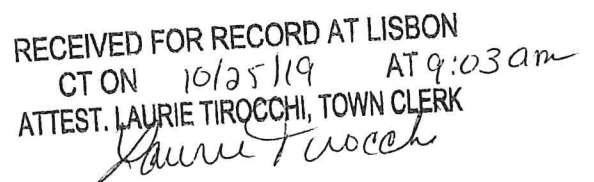 RECEIVED FOR RECORD AT LISBON
CT ON 10/25/19 AT 9:03 am
ATTEST. LAURIE TIROCCHI, TOWN CLERK
Laurie Tirocchi